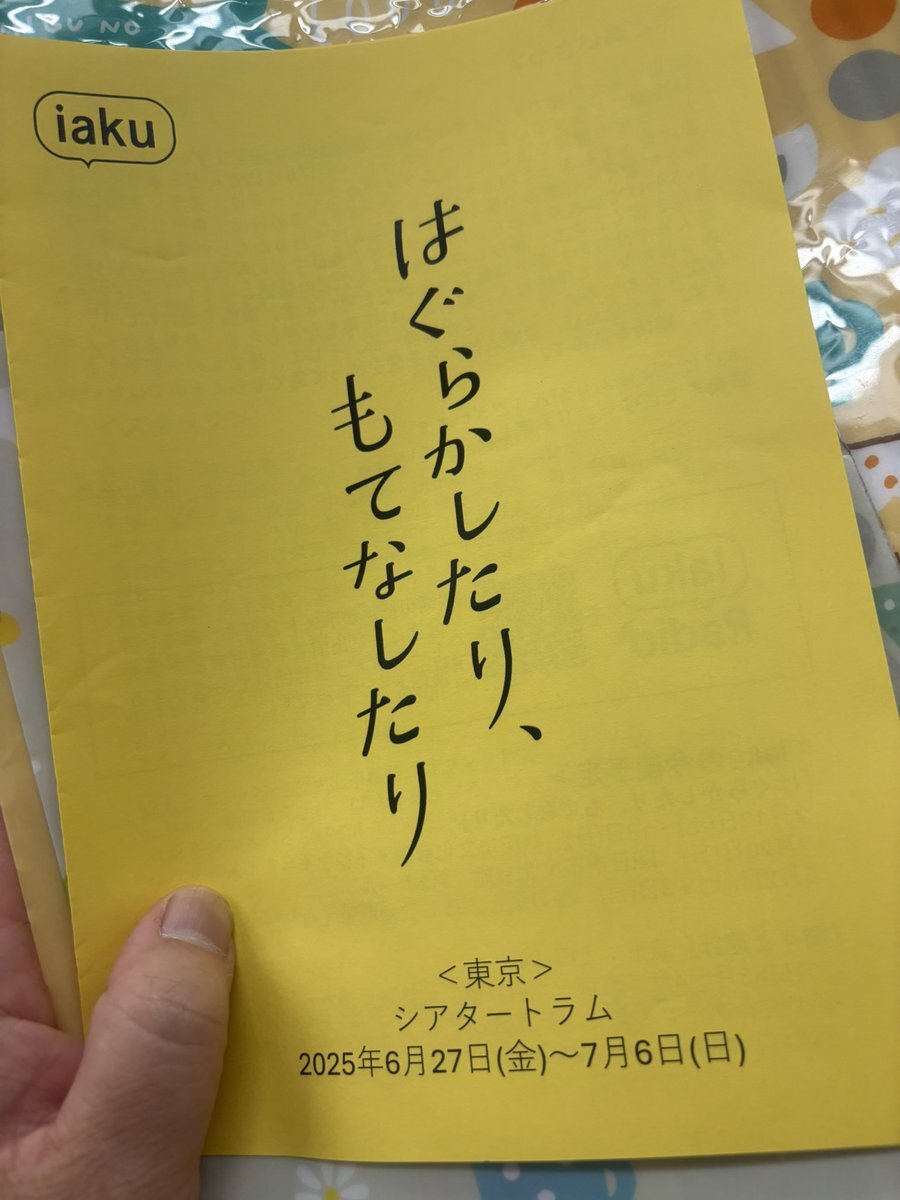 iaku
はぐらかしたり、
もてなしたり
＜東京＞
シアタートラム
2025年6月27日(金)～7月6日(日)